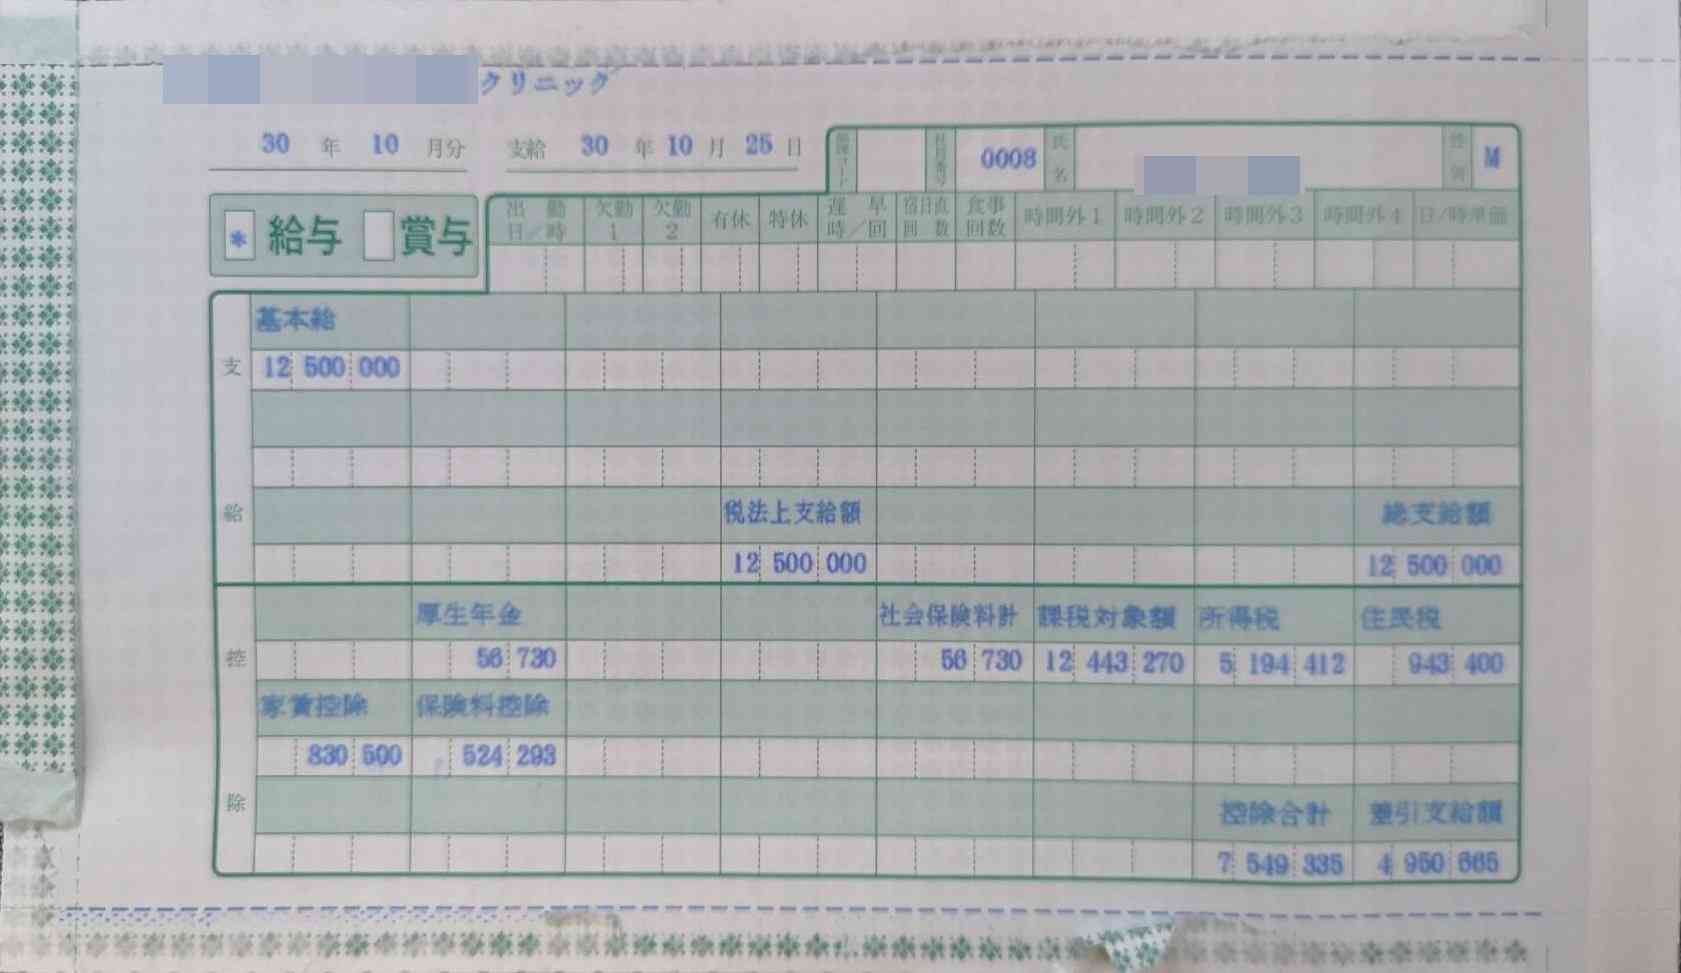 クリニック
30 年 10 月分 支給 30 年 10 月 25 日
社員番号 0008 氏名 性別 M
* 給与 賞与
出勤日/時 欠勤1 欠勤2 有休 特休 遅早時/回 宿日直回数 食事回数 時間外1 時間外2 時間外3 時間外4 日/時単価
支給
基本給
12 500 000
税法上支給額 総支給額
12 500 000 12 500 000
控除
厚生年金 社会保険料計 課税対象額 所得税 住民税
56 730 56 730 12 443 270 5 194 412 943 400
家賃控除 保険料控除
830 500 524 293
控除合計 差引支給額
7 549 335 4 950 665